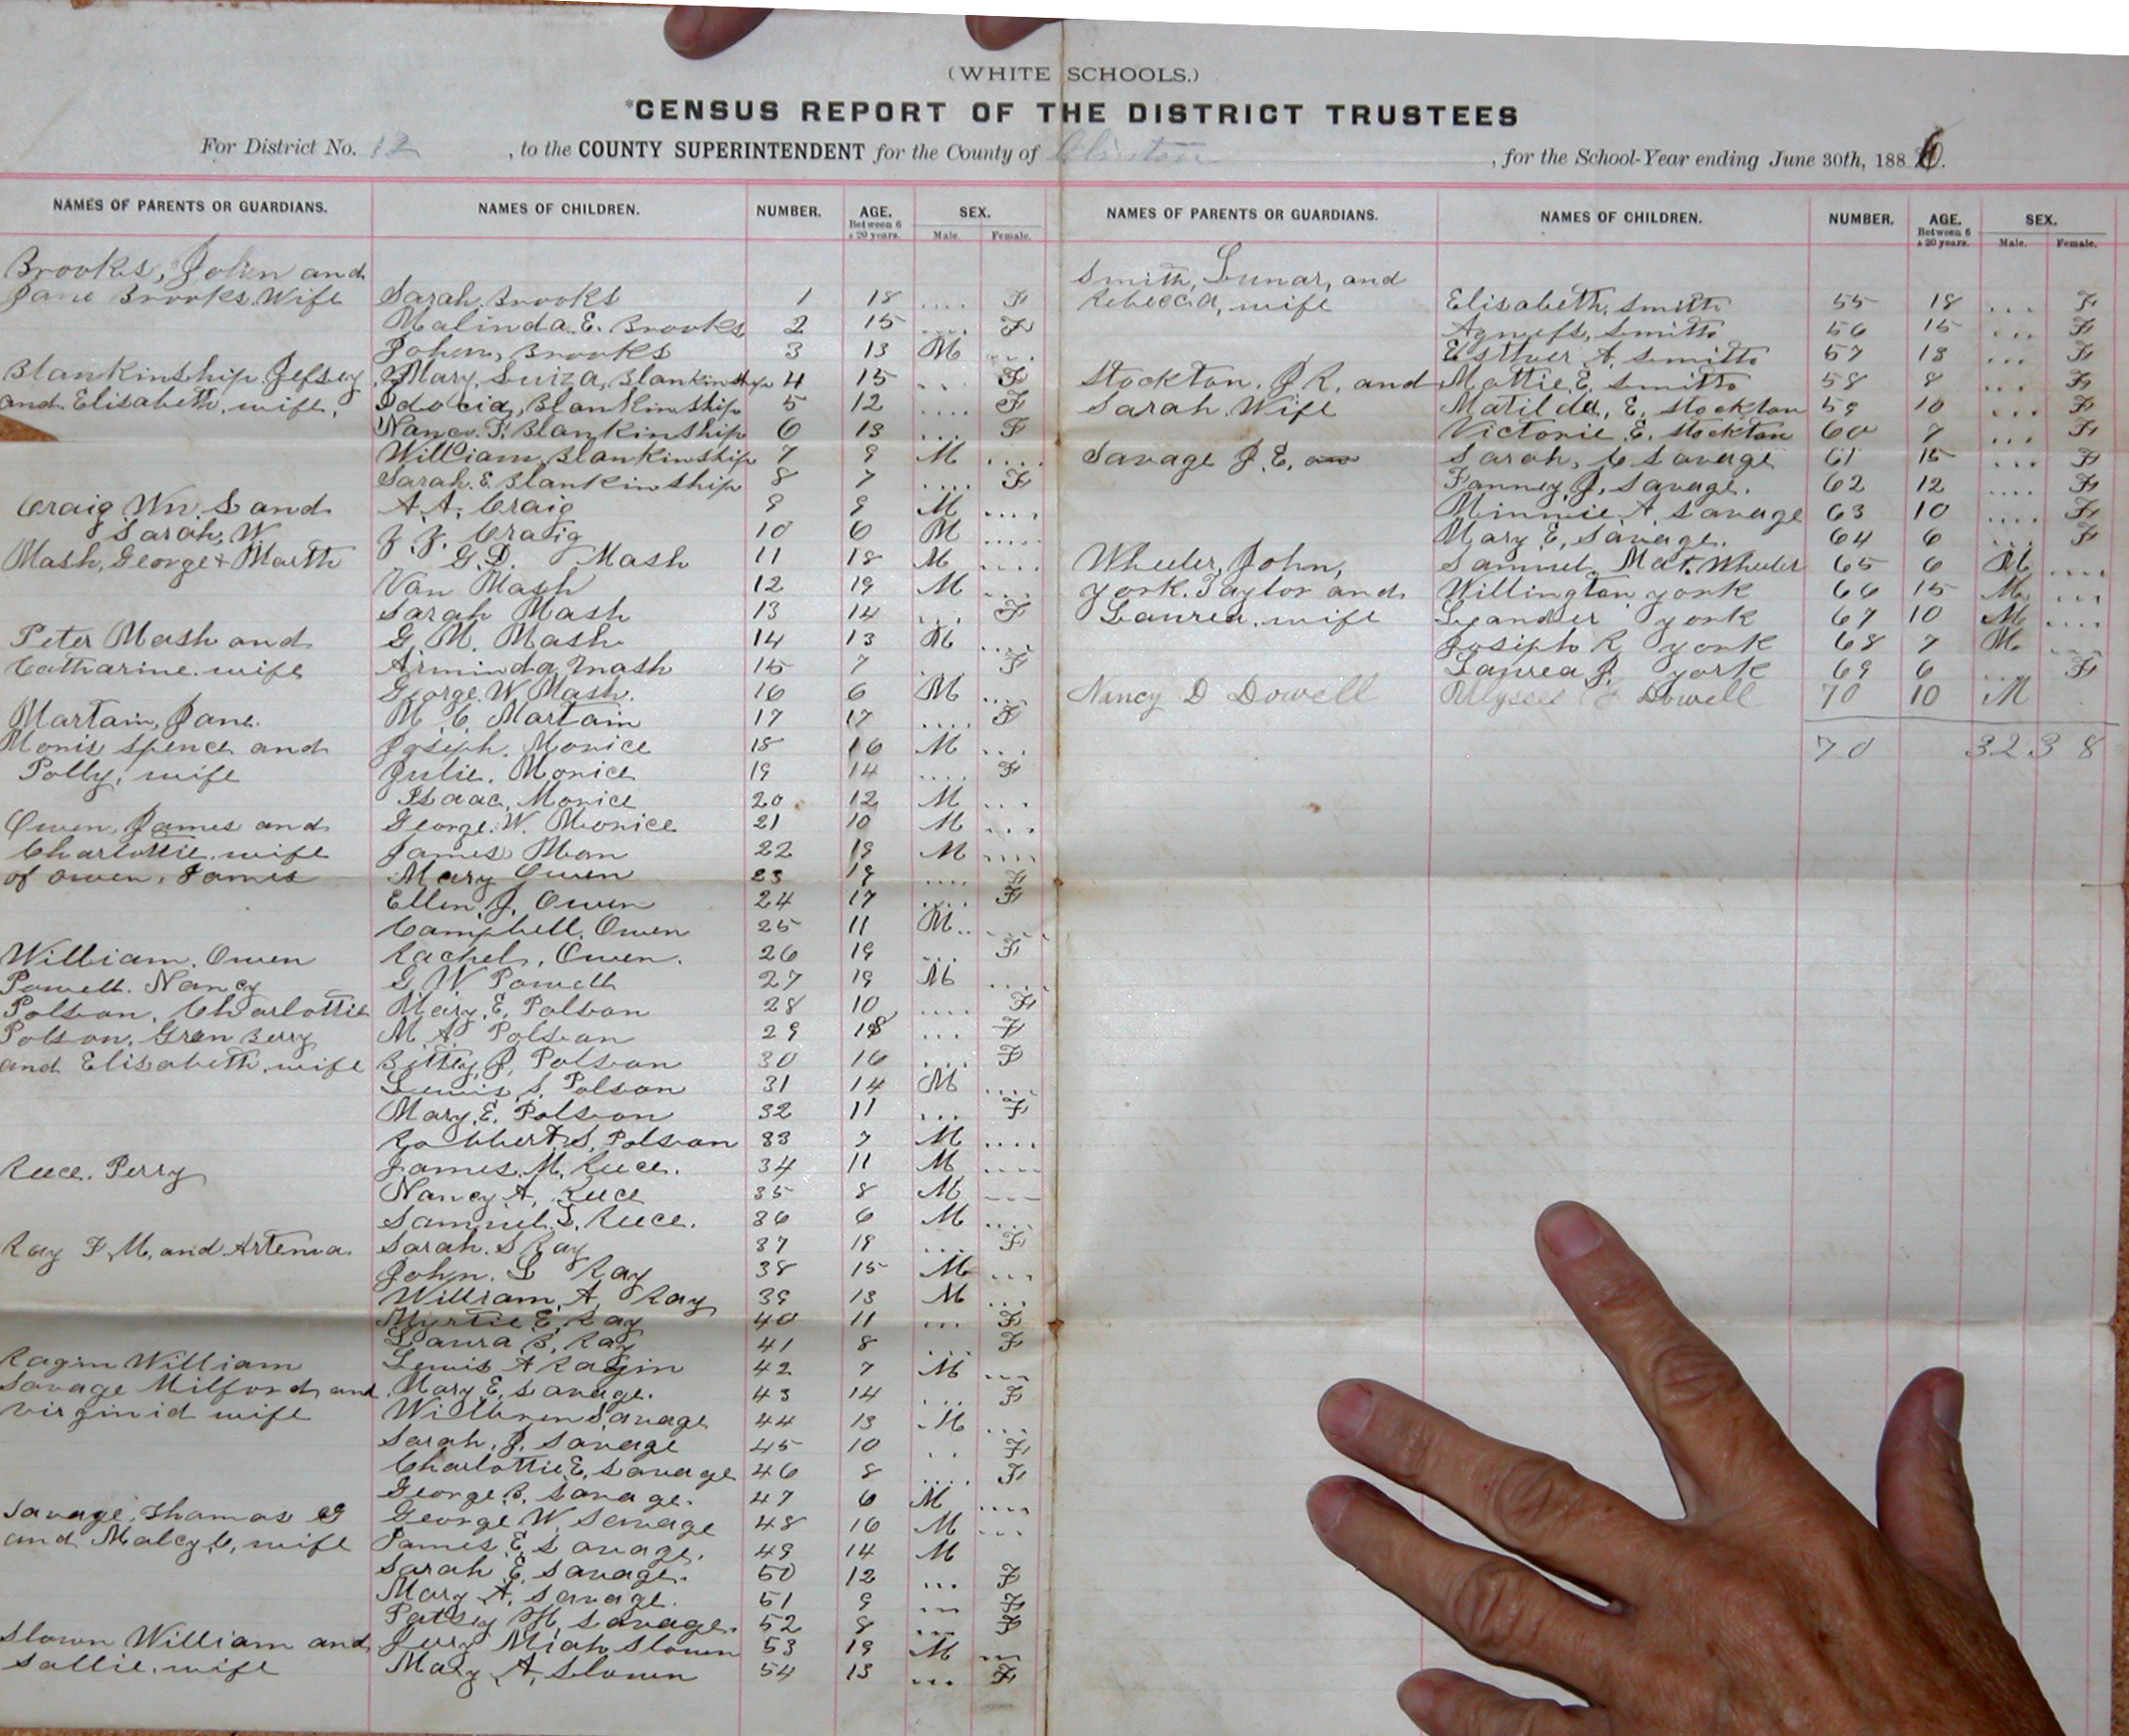 (WHITE SCHOOLS.)
*CENSUS REPORT OF THE DISTRICT TRUSTEES
For District No. 12, to the COUNTY SUPERINTENDENT for the County of Clinton, for the School-Year ending June 30th, 1886.
NAMES OF PARENTS OR GUARDIANS. NAMES OF CHILDREN. NUMBER. AGE. Between 6 & 20 years. SEX. Male. Female.
Brooks, John and
Jane Brooks Wife Sarah Brooks 1 18 .... F
Malinda E. Brooks 2 15 .... F
John, Brooks 3 13 M ....
Blankinship Jefsey Mary, Luiza, Blankinship 4 15 ... F
and Elisabeth, wife, Idocia, Blankinship 5 12 .... F
Nancy. F. Blankinship 6 13 ... F
William Blankinship 7 9 M ....
Sarah. E. Blankinship 8 7 .... F
Craig Wm. S and A. A. Craig 9 9 M ....
Sarah, W. J. J. Craig 10 6 M ....
Mash, George + Marth G. D. Mash 11 18 M ....
Van Mash 12 19 M ...
Sarah Mash 13 14 ... F
Peter Mash and G. M. Mash 14 13 M ...
Catharine. wife Arminda Mash 15 7 . F
George. W. Mash. 16 6 M ...
Martain, Jane. M. C. Martain 17 17 .... F
Monis Spence and Joseph. Monice 18 16 M ...
Polly, wife Julie. Monice 19 14 .... F
Isaac, Monice 20 12 M ...
Owen, James and George. W. Monice 21 10 M ...
Charlottie. wife James Mon 22 19 M ....
of owen, James Mary Owen 23 19 .... F
Ellen, J. Owen 24 17 .... F
Campbell. Owen 25 11 M.. ....
William. Owen Rachel, Owen. 26 19 ... F
Powell. Nancy G W Powell 27 19 M ....
Polson. Charlottie Mary, E. Polson 28 10 .... F
Polson, Gren Berry M. A. Polson 29 18 ... F
and Elisabeth. wife Bittey J. Polson 30 16 .... F
Lewis S. Polson 31 14 M ....
Mary, E. Polson 32 11 ... F
Robbert, S. Polson 33 7 M ....
Reece. Perry James. M. Reece. 34 11 M ....
Nancy A, Reece 35 8 M ...
Samuel. S. Reece. 36 6 M ....
Ray F. M, and Artema. Sarah. S Ray 37 19 ... F
John. L Ray 38 15 M ...
William. A, Ray 39 13 M ...
Myrtie E, Ray 40 11 ... F
Laura B. Ray 41 8 ... F
Ragin William Lewis A Ragin 42 7 M ...
Savage Milford, and Mary E, Savage. 43 14 ... F
Virginid wife Wilbren Savage 44 13 M ...
Sarah, J. Savage 45 10 .. F
Charlottie E, Savage 46 8 .... F
George B. Savage. 47 6 M ....
Savage, Thomas G George W. Savage 48 16 M ...
and Malcy C, wife James E, Savage. 49 14 M
Sarah E, Savage. 50 12 ... F
Mary A, Savage. 51 9 ... F
Patsey M, Savage. 52 8 ... F
Slown William and Jerry Miah Slown 53 19 M ...
Sallie. wife Mary A, Slown 54 13 ... F
NAMES OF PARENTS OR GUARDIANS. NAMES OF CHILDREN. NUMBER. AGE. Between 6 & 20 years. SEX. Male. Female.
Smith, Lunar, and
Rebecca, wife Elisabeth, Smith 55 18 ... F
Agness, Smith 56 15 ... F
Esther A. Smith 57 13 ... F
Stockton. J R, and Mattie E, Smith 58 8 ... F
Sarah. Wife Matilda, E. Stockton 59 10 ... F
Victorie E. Stockton 60 7 ... F
Savage J. E, an Sarah, C Savage 61 15 ... F
Fanney J. Savage. 62 12 .... F
Minnie A. Savage 63 10 .... F
Mary E, Savage. 64 6 ... F
Wheeler, John, Samuel. Mat. Wheeler 65 6 M ....
york. Taylor and Willington york 66 15 M ...
Laurea. wife Leander york 67 10 M ....
Joseph R york 68 7 M ...
Laurea J. york 69 6 ... F
Nancy D Dowell Ulysses Dowell 70 10 M .
70 32 38